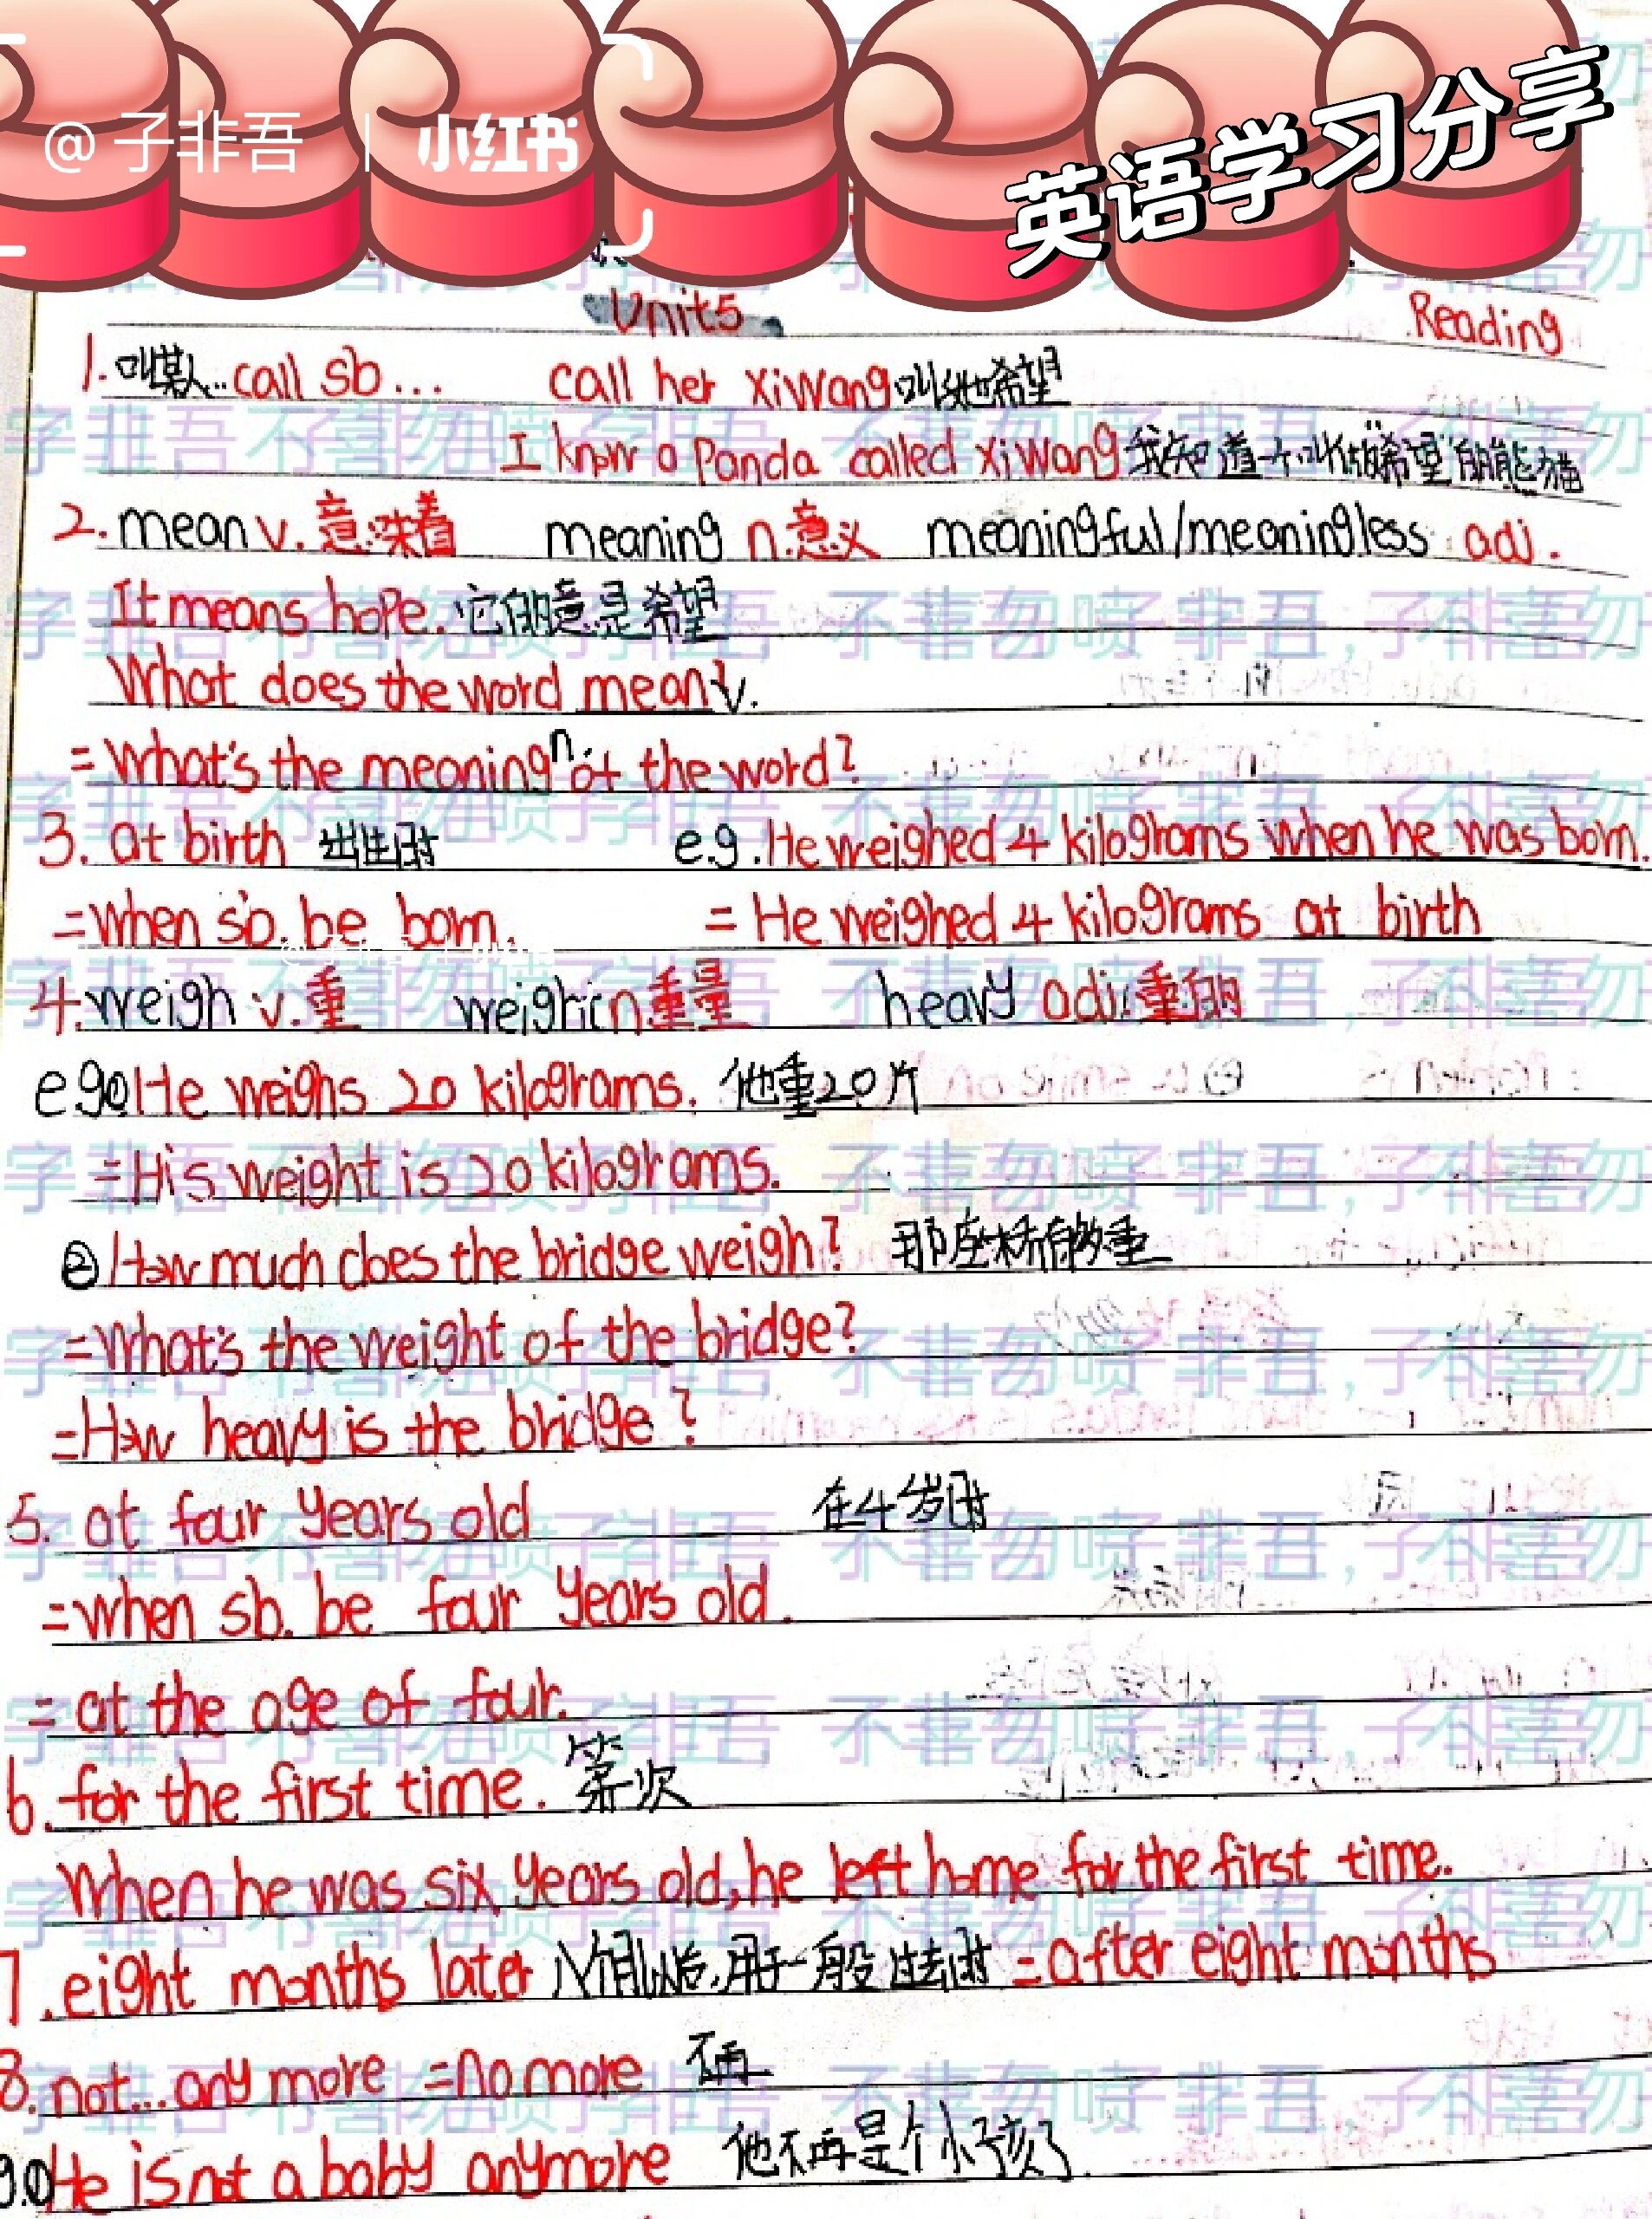 @子非吾 | 小红书
英语学习分享
Unit5
Reading
1.叫某人..call sb... call her XiWang叫她希望
I know a Panda called XiWang我知道一个叫做"希望"的熊猫
2.mean v.意味着 meaning n.意义 meaningful/meaningless adj.
It means hope.它的意思是希望
What does the word mean?v.
=What's the meaning n. of the word?
3. at birth 出生时 e.g.He weighed 4 kilograms when he was born.
=when sb. be born. = He weighed 4 kilograms at birth
4.weigh v.重 weight n重量 heavy adj.重的
eg①He weighs 20 kilograms. 他重20斤
=His weight is 20 kilograms.
②How much does the bridge weigh? 那座桥有多重
=What's the weight of the bridge?
=How heavy is the bridge?
5. at four years old 在4岁时
=when sb. be four years old.
= at the age of four.
6. for the first time. 第一次
When he was six years old,he left home for the first time.
7.eight months later 八个月以后,用于一般过去时 =after eight months
8.not...any more =no more 不再
g.①He is not a baby anymore 他不再是个小孩了.